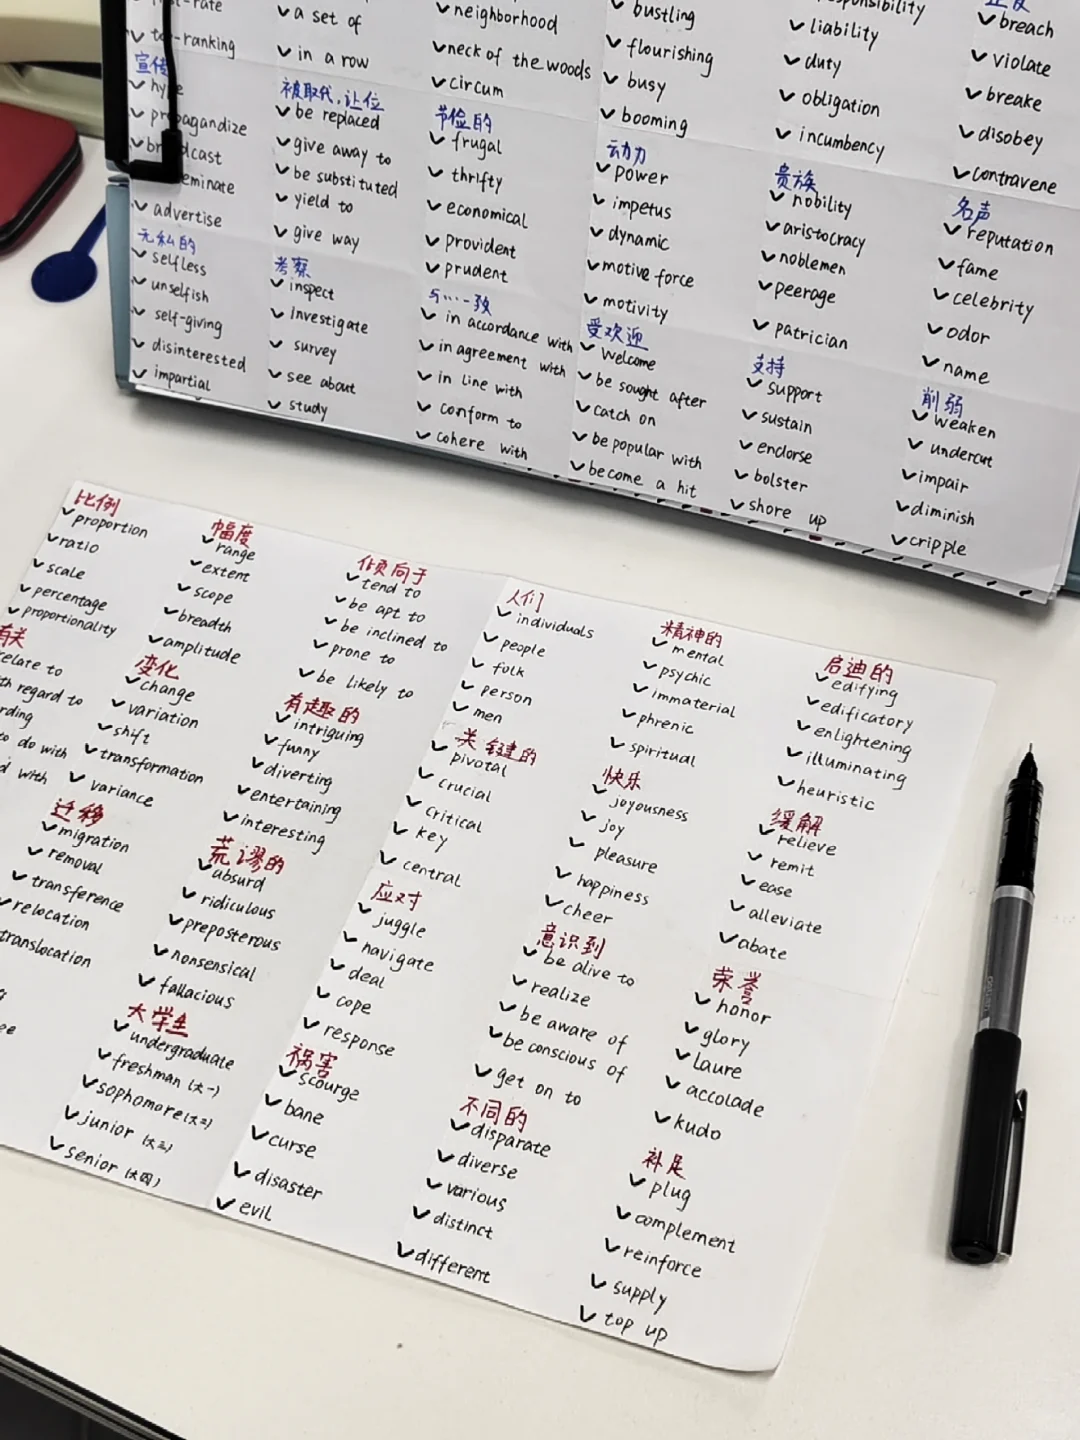 a set of
in a row
被取代,让位
be replaced
give away to
be substituted
yield to
give way
考察
inspect
investigate
survey
see about
study
宣传
advertise
无私的
selfless
unselfish
self-giving
disinterested
impartial
neighborhood
neck of the woods
circum
节俭的
frugal
thrifty
economical
provident
prudent
与...一致
in accordance with
in agreement with
in line with
conform to
cohere with
bustling
flourishing
busy
booming
动力
power
impetus
dynamic
motive force
motivity
受欢迎
welcome
be sought after
catch on
be popular with
become a hit
liability
duty
obligation
incumbency
贵族
nobility
aristocracy
noblemen
peerage
patrician
支持
support
sustain
endorse
bolster
shore up
breach
violate
breake
disobey
contravene
名声
reputation
fame
celebrity
odor
name
削弱
weaken
undercut
impair
diminish
cripple
比例
proportion
ratio
scale
percentage
proportionality
有关
to do with
with
幅度
range
extent
scope
breadth
amplitude
变化
change
variation
shift
transformation
variance
迁移
migration
removal
transference
relocation
translocation
倾向于
tend to
be apt to
be inclined to
prone to
be likely to
有趣的
intriguing
funny
diverting
entertaining
interesting
荒谬的
absurd
ridiculous
preposterous
nonsensical
fallacious
大学生
undergraduate
freshman (大一)
sophomore (大二)
junior (大三)
senior (大四)
人们
individuals
people
folk
person
men
关键的
pivotal
crucial
critical
key
central
应对
juggle
navigate
deal
cope
response
祸害
scourge
bane
curse
disaster
evil
精神的
mental
psychic
immaterial
phrenic
spiritual
快乐
joyousness
joy
pleasure
happiness
cheer
意识到
be alive to
realize
be aware of
be conscious of
get on to
不同的
disparate
diverse
various
distinct
different
启迪的
edifying
edificatory
enlightening
illuminating
heuristic
缓解
relieve
remit
ease
alleviate
abate
荣誉
honor
glory
laure
accolade
kudo
补足
plug
complement
reinforce
supply
top up